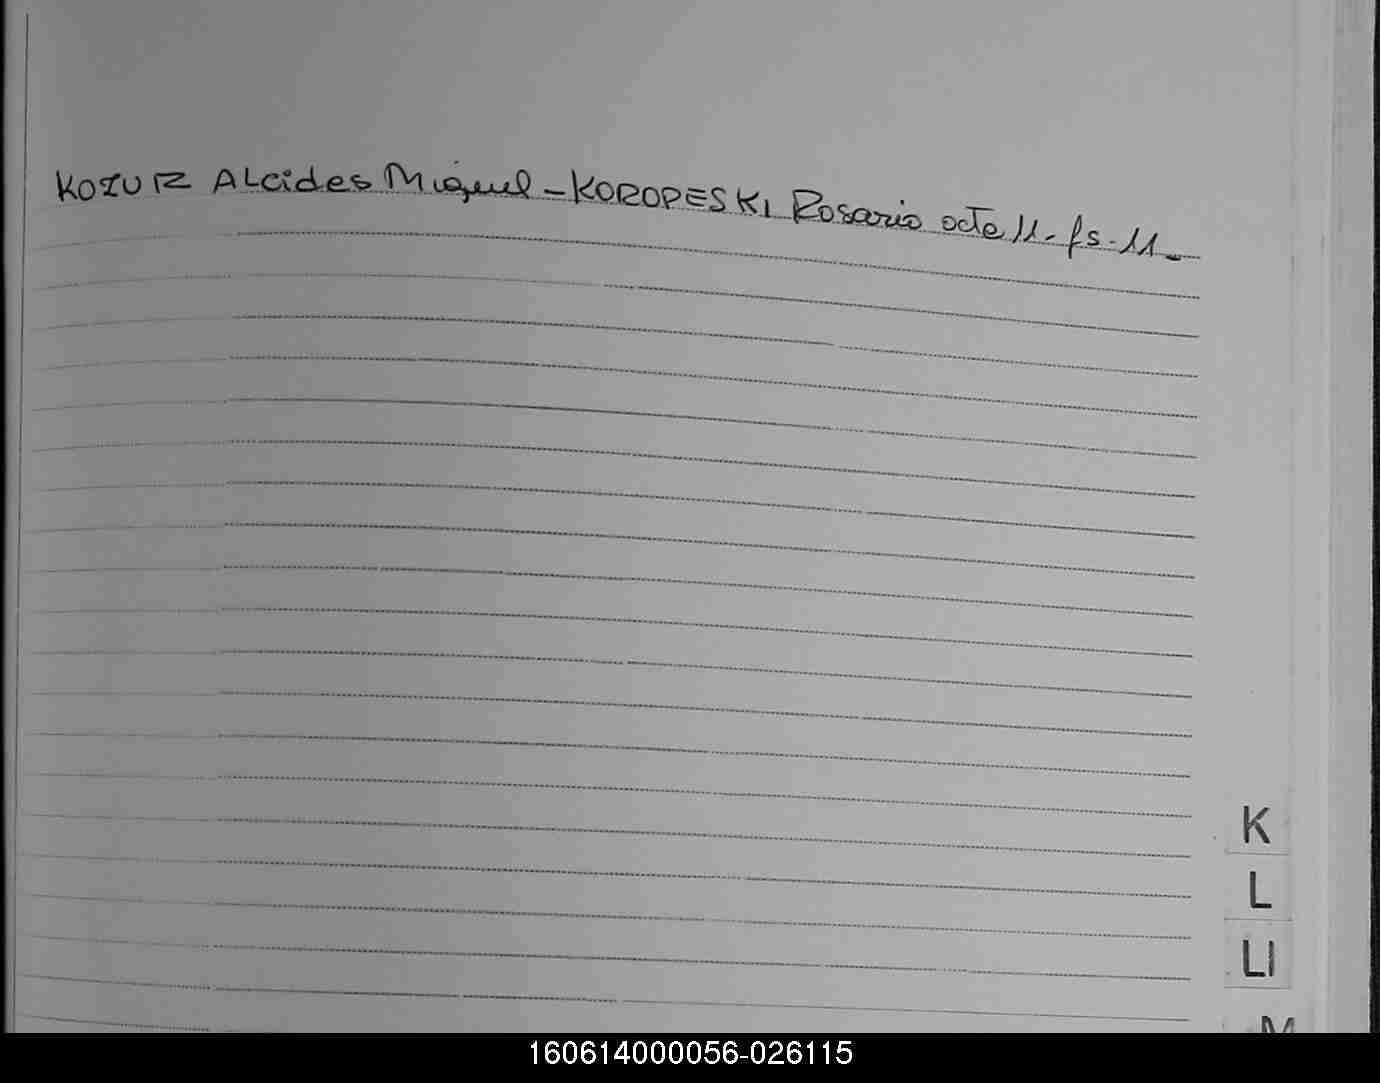 KOZUR ALcides Miguel - KOROPESKI Rosario acta 11. fs. 11.
K
L
Ll
M
160614000056-026115